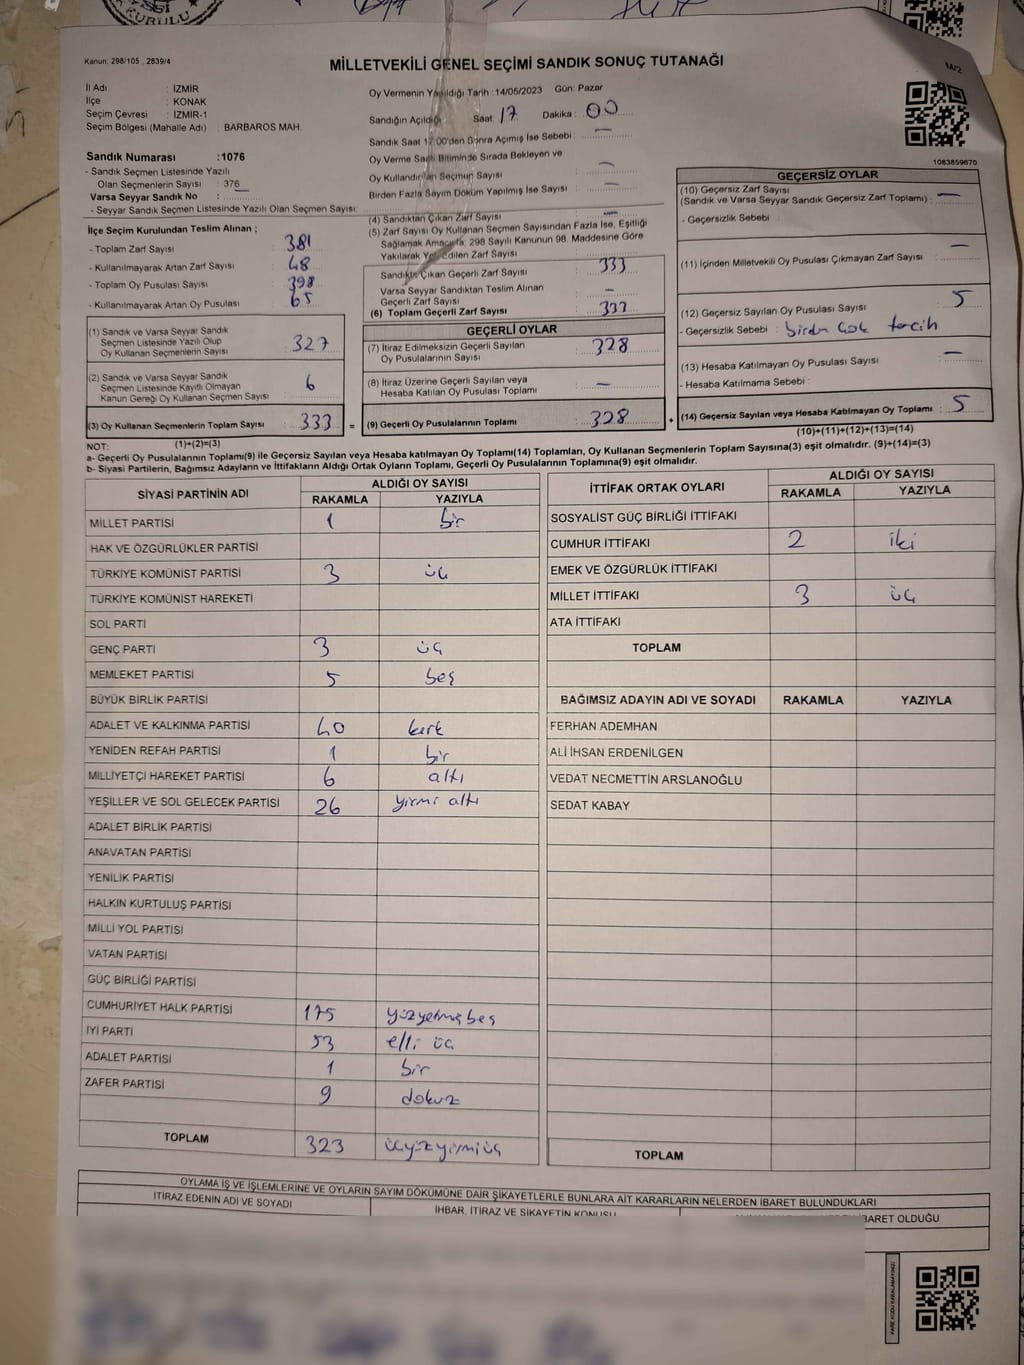 KURULU
Kanun: 298/105 , 2839/4
MİLLETVEKİLİ GENEL SEÇİMİ SANDIK SONUÇ TUTANAĞI
M/2
İl Adı : İZMİR
İlçe : KONAK
Seçim Çevresi : İZMİR-1
Seçim Bölgesi (Mahalle Adı) : BARBAROS MAH.
Oy Vermenin Yapıldığı Tarih :14/05/2023 Gün: Pazar
Sandığın Açıldığı Saat: 17 Dakika: 00
Sandık Saat 17:00'den Sonra Açımış İse Sebebi : —
Oy Verme Saati Bitiminde Sırada Bekleyen ve
Oy Kullandırılan Seçmen Sayısı —
Birden Fazla Sayım Döküm Yapılmış İse Sayısı : —
1083859670
Sandık Numarası :1076
- Sandık Seçmen Listesinde Yazılı
Olan Seçmenlerin Sayısı : 376
Varsa Seyyar Sandık No :
- Seyyar Sandık Seçmen Listesinde Yazılı Olan Seçmen Sayısı:
İlçe Seçim Kurulundan Teslim Alınan ;
- Toplam Zarf Sayısı 381
- Kullanılmayarak Artan Zarf Sayısı 48
- Toplam Oy Pusulası Sayısı 398
- Kullanılmayarak Artan Oy Pusulası 65
(1) Sandık ve Varsa Seyyar Sandık
Seçmen Listesinde Yazılı Olup
Oy Kullanan Seçmenlerin Sayısı : 327
(2) Sandık ve Varsa Seyyar Sandık
Seçmen Listesinde Kayıtlı Olmayan
Kanun Gereği Oy Kullanan Seçmen Sayısı : 6
(3) Oy Kullanan Seçmenlerin Toplam Sayısı : 333 =
(1)+(2)=(3)
(4) Sandıktan Çıkan Zarf Sayısı —
(5) Zarf Sayısı Oy Kullanan Seçmen Sayısından Fazla İse, Eşitliği
Sağlamak Amacıyla; 298 Sayılı Kanunun 98. Maddesine Göre
Yakılarak Yok Edilen Zarf Sayısı
Sandıktan Çıkan Geçerli Zarf Sayısı 333
Varsa Seyyar Sandıktan Teslim Alınan
Geçerli Zarf Sayısı —
(6) Toplam Geçerli Zarf Sayısı : 333
GEÇERLİ OYLAR
(7) İtiraz Edilmeksizin Geçerli Sayılan
Oy Pusulalarının Sayısı 328
(8) İtiraz Üzerine Geçerli Sayılan veya
Hesaba Katılan Oy Pusulası Toplamı —
(9) Geçerli Oy Pusulalarının Toplamı 328 +
GEÇERSİZ OYLAR
(10) Geçersiz Zarf Sayısı
(Sandık ve Varsa Seyyar Sandık Geçersiz Zarf Toplamı) : —
- Geçersizlik Sebebi :
(11) İçinden Milletvekili Oy Pusulası Çıkmayan Zarf Sayısı : —
(12) Geçersiz Sayılan Oy Pusulası Sayısı 5
- Geçersizlik Sebebi : birden çok tercih
(13) Hesaba Katılmayan Oy Pusulası Sayısı —
- Hesaba Katılmama Sebebi :
(14) Geçersiz Sayılan veya Hesaba Katılmayan Oy Toplamı : 5
(10)+(11)+(12)+(13)=(14)
NOT:
a- Geçerli Oy Pusulalarının Toplamı(9) ile Geçersiz Sayılan veya Hesaba katılmayan Oy Toplamı(14) Toplamları, Oy Kullanan Seçmenlerin Toplam Sayısına(3) eşit olmalıdır. (9)+(14)=(3)
b- Siyasi Partilerin, Bağımsız Adayların ve İttifakların Aldığı Ortak Oyların Toplamı, Geçerli Oy Pusulalarının Toplamına(9) eşit olmalıdır.
SİYASİ PARTİNİN ADI ALDIĞI OY SAYISI
RAKAMLA YAZIYLA
MİLLET PARTİSİ 1 bir
HAK VE ÖZGÜRLÜKLER PARTİSİ
TÜRKİYE KOMÜNİST PARTİSİ 3 üç
TÜRKİYE KOMÜNİST HAREKETİ
SOL PARTİ
GENÇ PARTİ 3 üç
MEMLEKET PARTİSİ 5 beş
BÜYÜK BİRLİK PARTİSİ
ADALET VE KALKINMA PARTİSİ 40 kırk
YENİDEN REFAH PARTİSİ 1 bir
MİLLİYETÇİ HAREKET PARTİSİ 6 altı
YEŞİLLER VE SOL GELECEK PARTİSİ 26 yirmi altı
ADALET BİRLİK PARTİSİ
ANAVATAN PARTİSİ
YENİLİK PARTİSİ
HALKIN KURTULUŞ PARTİSİ
MİLLİ YOL PARTİSİ
VATAN PARTİSİ
GÜÇ BİRLİĞİ PARTİSİ
CUMHURİYET HALK PARTİSİ 175 yüzyetmişbeş
İYİ PARTİ 53 elli üç
ADALET PARTİSİ 1 bir
ZAFER PARTİSİ 9 dokuz
TOPLAM 323 üçyüzyirmiüç
İTTİFAK ORTAK OYLARI ALDIĞI OY SAYISI
RAKAMLA YAZIYLA
SOSYALİST GÜÇ BİRLİĞİ İTTİFAKI
CUMHUR İTTİFAKI 2 iki
EMEK VE ÖZGÜRLÜK İTTİFAKI
MİLLET İTTİFAKI 3 üç
ATA İTTİFAKI
TOPLAM
BAĞIMSIZ ADAYIN ADI VE SOYADI RAKAMLA YAZIYLA
FERHAN ADEMHAN
ALİ İHSAN ERDENİLGEN
VEDAT NECMETTİN ARSLANOĞLU
SEDAT KABAY
TOPLAM
OYLAMA İŞ VE İŞLEMLERİNE VE OYLARIN SAYIM DÖKÜMÜNE DAİR ŞİKAYETLERLE BUNLARA AİT KARARLARIN NELERDEN İBARET BULUNDUKLARI
İTİRAZ EDENİN ADI VE SOYADI
İHBAR, İTİRAZ VE ŞİKAYETİN KONUSU
İBARET OLDUĞU